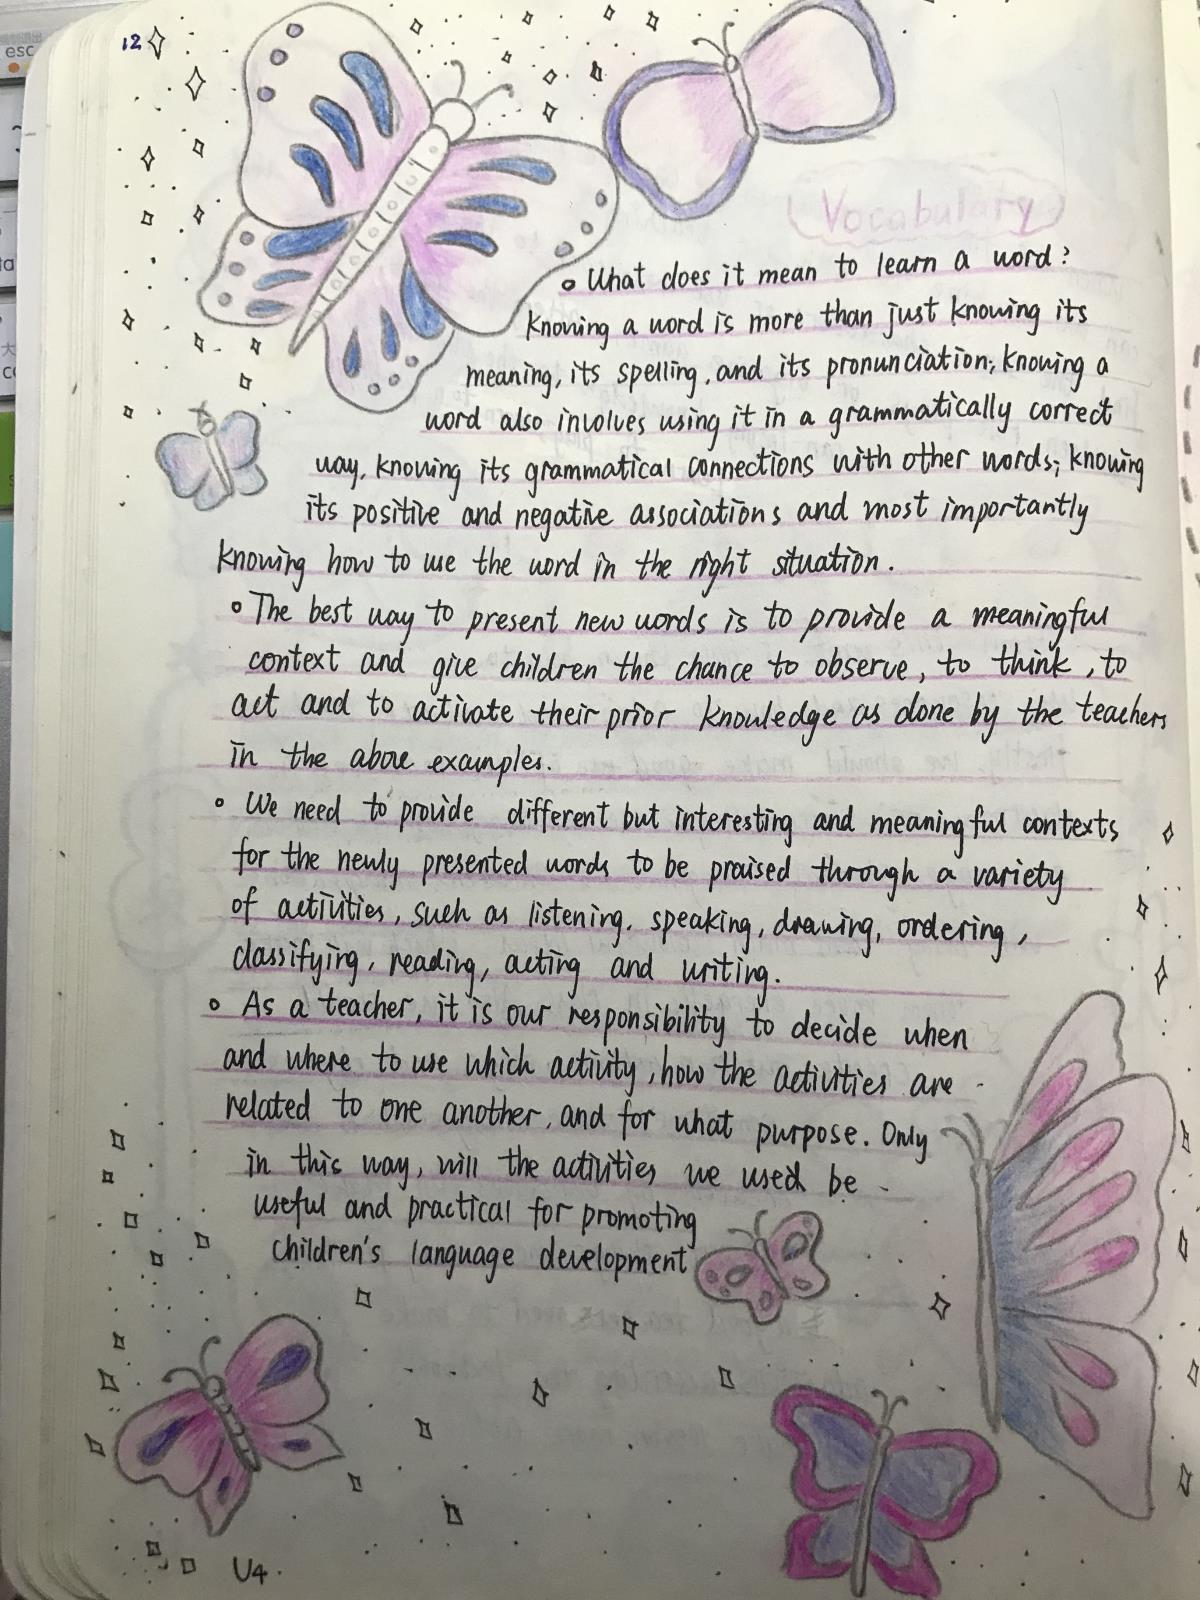 12
esc
Vocabulary
• What does it mean to learn a word?
Knowing a word is more than just knowing its
meaning, its spelling, and its pronunciation; knowing a
word also involves using it in a grammatically correct
way, knowing its grammatical connections with other words; knowing
its positive and negative associations and most importantly
knowing how to use the word in the right situation.
• The best way to present new words is to provide a meaningful
context and give children the chance to observe, to think, to
act and to activate their prior knowledge as done by the teachers
in the above examples.
• We need to provide different but interesting and meaningful contexts
for the newly presented words to be praised through a variety
of activities, such as listening, speaking, drawing, ordering,
classifying, reading, acting and writing.
• As a teacher, it is our responsibility to decide when
and where to use which activity, how the activities are
related to one another, and for what purpose. Only
in this way, will the activities we used be
useful and practical for promoting
children's language development
U4